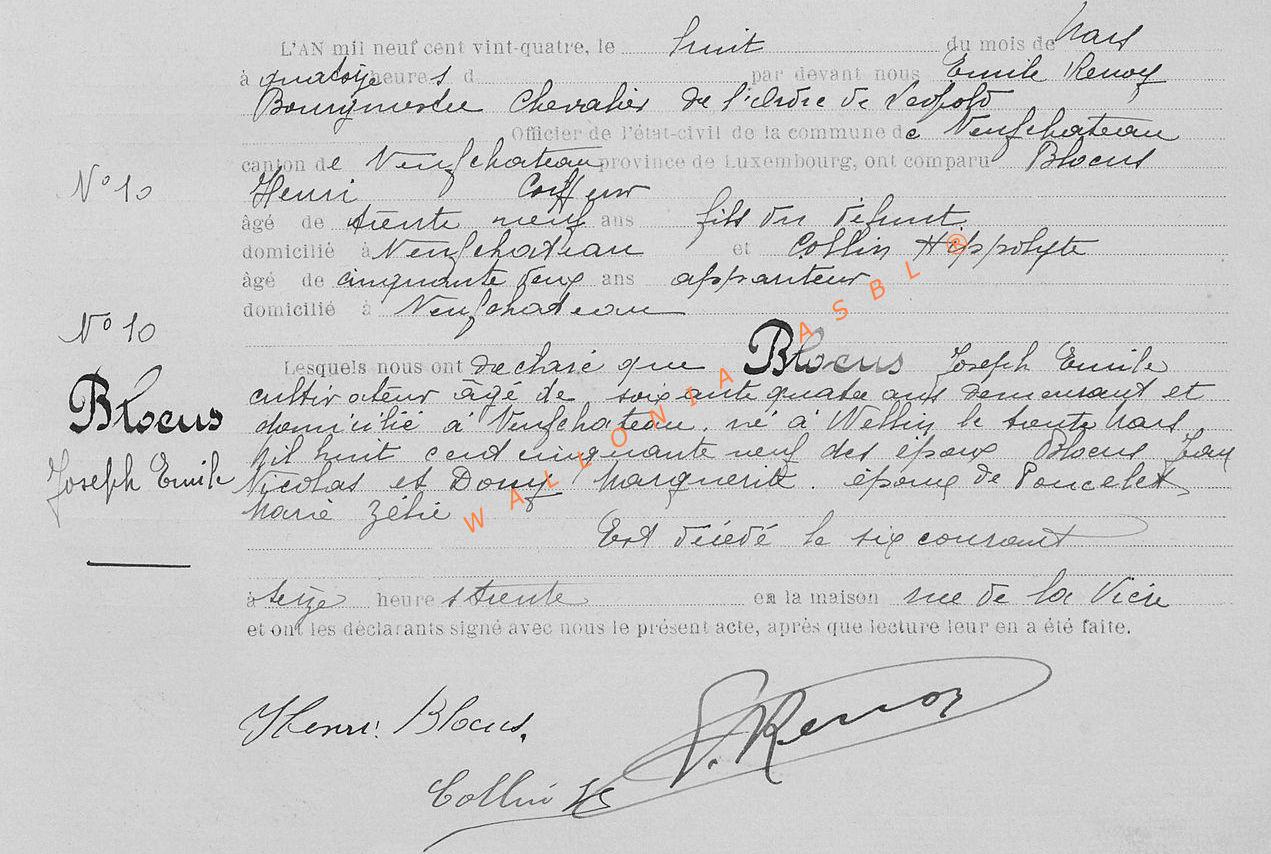 L'AN mil neuf cent vint-quatre, le huit du mois de Mars
à quatorze heures d par devant nous Emile Renoy
Bourgmestre Chevalier de l'Ordre de Léopold
Officier de l'état-civil de la commune de Neufchateau
N° 10 canton de Neufchateau province de Luxembourg, ont comparu Blocus
Henri Coiffeur
âgé de trente neuf ans fils du défunt
domicilié à Neufchateau et Collin Hippolyte
âgé de cinquante deux ans appariteur
domicilié à Neufchateau
N° 10
Lesquels nous ont déclaré que Blocus Joseph Emile
Blocus
Joseph Emile
cultivateur âgé de soixante quatre ans demeurant et
domicilié à Neufchateau, né à Wellin le trente Mars
mil huit cent cinquante neuf des époux Blocus Jean
Nicolas et Dony Marguerite. époux de Poncelet
Marie Zélie
Est décédé le six courant
à seize heures trente en la maison rue de la Vière
et ont les déclarants signé avec nous le présent acte, après que lecture leur en a été faite.
Henri Blocus.
E. Renoy
Collin H
WALLONIA ASBL ®